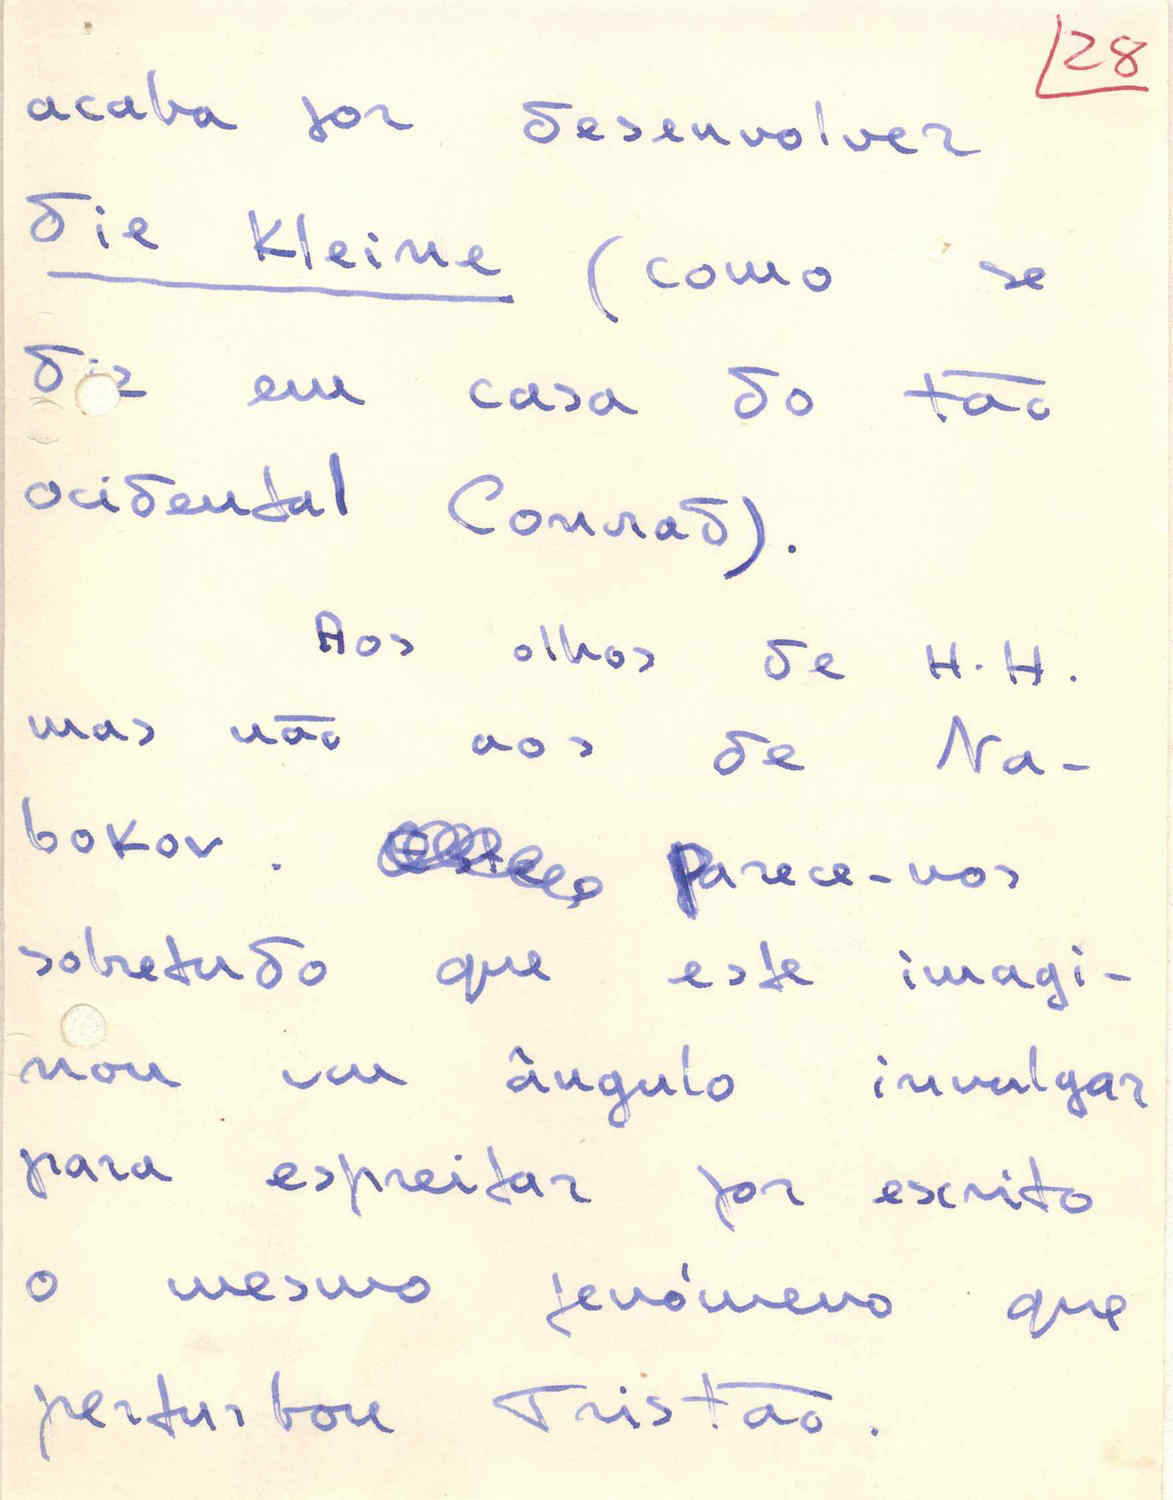 28
acaba por desenvolver
die Kleine (como se
diz em casa do tão
ocidental Conrad).
Aos olhos de H.H.
mas não aos de Na-
bokov. Parece-nos
sobretudo que este imagi-
nou um ângulo invulgar
para espreitar por escrito
o mesmo fenómeno que
perturbou Tristão.